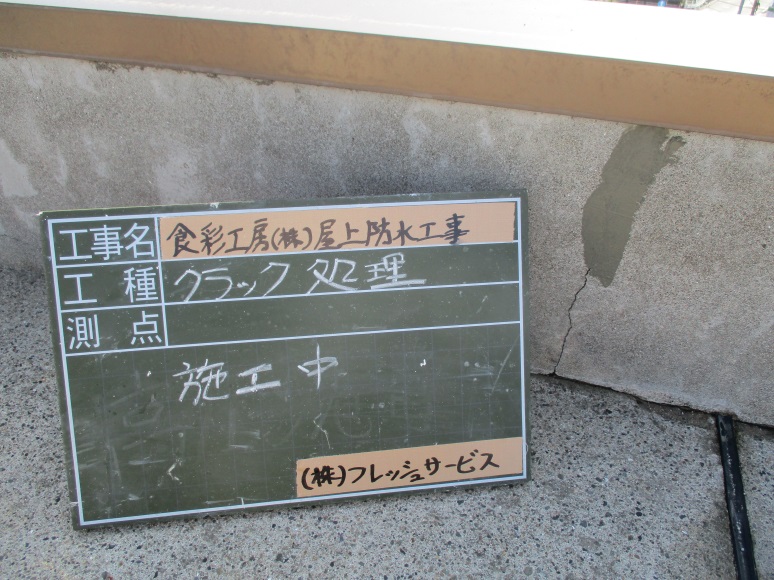 工事名 食彩工房(株)屋上防水工事
工種 クラック処理
測点
施工中
(株)フレッシュサービス